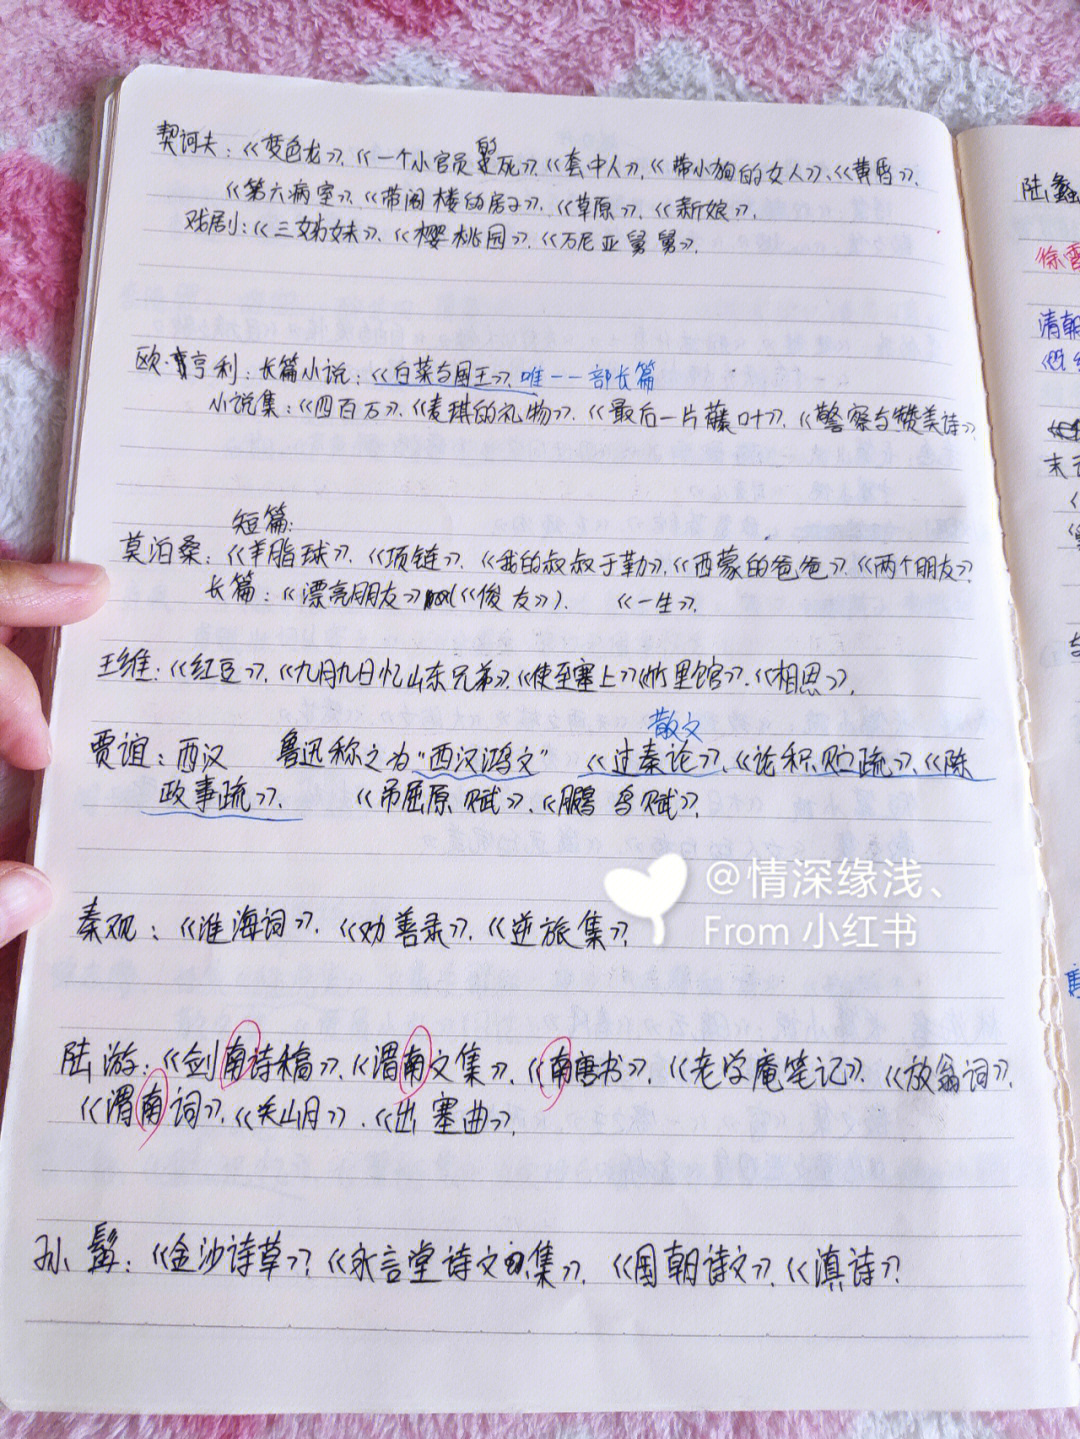 契诃夫：《变色龙》、《一个小官员的死》、《套中人》、《带小狗的女人》、《黄昏》、
《第六病室》、《带阁楼的房子》、《草原》、《新娘》、
戏剧：《三姊妹》、《樱桃园》、《万尼亚舅舅》、
欧·亨利：长篇小说：《白菜与国王》、唯一一部长篇
小说集：《四百万》、《麦琪的礼物》、《最后一片藤叶》、《警察与赞美诗》、
短篇：
莫泊桑：《羊脂球》、《项链》、《我的叔叔于勒》、《西蒙的爸爸》、《两个朋友》、
长篇：《漂亮朋友》（《俊友》）、《一生》、
王维：《红豆》、《九月九日忆山东兄弟》、《使至塞上》《竹里馆》、《相思》、
散文
贾谊：西汉 鲁迅称之为"西汉鸿文" 《过秦论》、《论积贮疏》、《陈
政事疏》、 《吊屈原赋》、《鵩鸟赋》、
秦观：《淮海词》、《劝善录》、《逆旅集》、
@情深缘浅、
From 小红书
陆游：《剑南诗稿》、《渭南文集》、《南唐书》、《老学庵笔记》、《放翁词》、
《渭南词》、《关山月》、《出塞曲》、
孙髯：《金沙诗草》？《永言堂诗文集》、《国朝诗文》、《滇诗》？
陆蠡
清朝